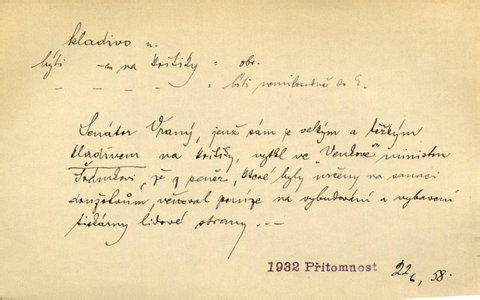 kladivo n.
býti -em na kritiky = obr.
– – – – – = bíti nemilosrdně do
Senátor Vraný, jenž sám je velkým a těžkým
kladivem na kritiky, vytkl ve „Venkově“ ministru
že z peněz, které byly určeny na sanaci
věnoval peníze na vybudování a vybavení
tiskárny lidové strany ---
1932 Přítomnost 22/6, 58.